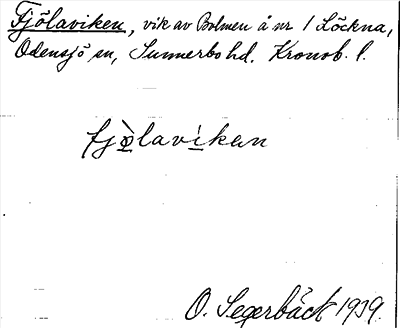 Fjölaviken, vik av Bolmen å nr 1 Löckna,
Odensjö sn, Sunnerbo hd. Kronob. l.
fjòlavikan
O. Segerbäck 1939.